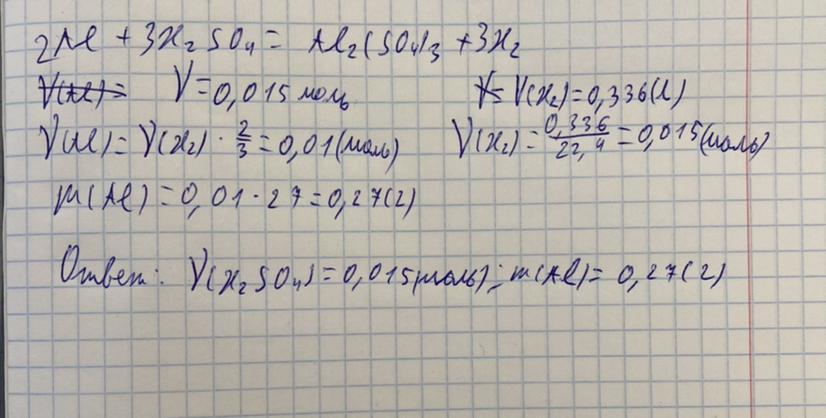 2Al + 3H₂SO₄ = Al₂(SO₄)₃ + 3H₂
ν(Al) = ν = 0,015 моль V = V(H₂) = 0,336 (л)
ν(Al) = ν(H₂) · 2/3 = 0,01 (моль) ν(H₂) = 0,336/22,4 = 0,015 (моль)
m(Al) = 0,01 · 27 = 0,27 (г)
Ответ: ν(H₂SO₄) = 0,015 (моль); m(Al) = 0,27 (г)